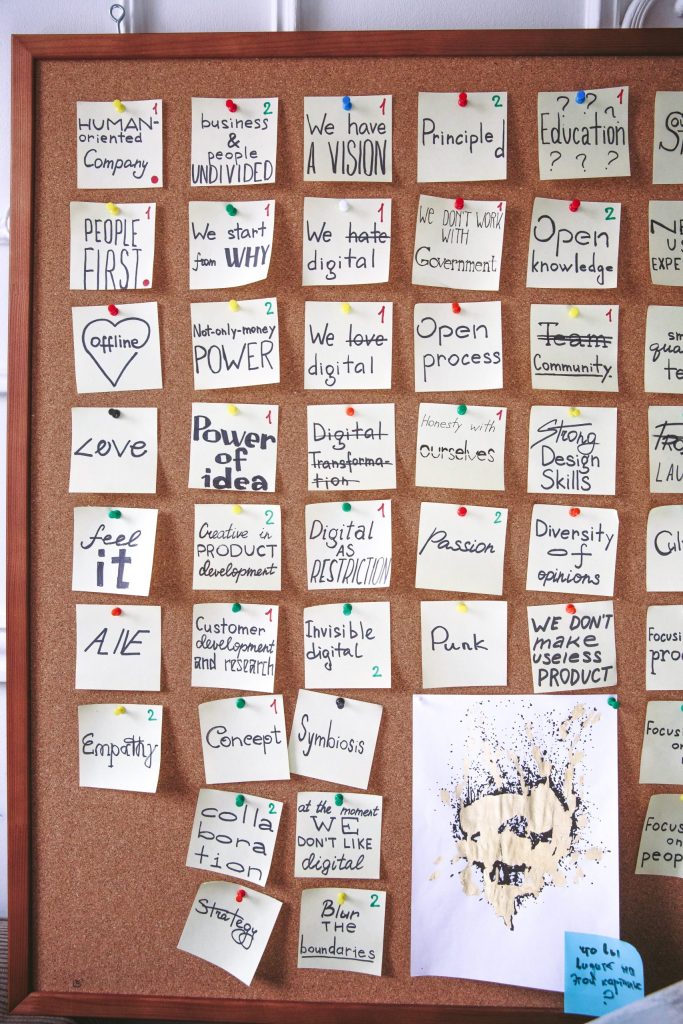 1
HUMAN-
oriented
Company
2
business
&
people
UNDIVIDED
1
We have
A VISION
2
Principled
1
? ? ?
Education
? ? ?
1
PEOPLE
FIRST
1
We start
from WHY
1
We hate
digital
1
WE DON'T WORK
WITH
Government
2
Open
knowledge
NE
US
EXPE
offline
2
Not-only-money
POWER
1
We love
digital
Open
process
1
Team
Community.
sm
qua
te
Love
1
Power
of
idea
1
Digital
Transforma-
tion
1
Honesty with
ourselves
Strong
Design
Skills
FRO
LAU
feel
it
2
Creative in
PRODUCT
development
1
Digital
AS
RESTRICTION
2
Passion
Diversity
of
opinions
Cul
ALIE
1
Customer
development
and research
Invisible
digital
2
Punk
WE DON'T
make
useless
PRODUCT
Focusi
on
proc
2
Empathy
1
Concept
Symbiosis
Focus
on
2
colla
bora
tion
at the moment
WE
DON'T LIKE
digital
Focus
on
people
Strategy
2
Blur
THE
boundaries
Что вы
видите на
этой картинке
?